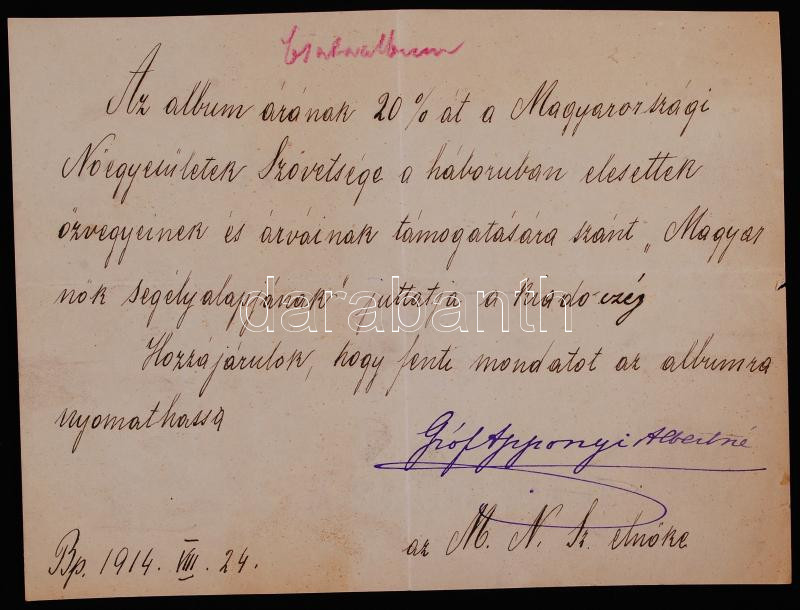 Csataalbum
Az album árának 20%át a Magyarországi
Nőegyesületek Szövetsége a háboruban elesettek
özvegyeinek és árváinak támogatására szánt „Magyar
nők segélyalapjának" juttatja a kiadó czég
Hozzájárulok, hogy fenti mondatot az albumra
nyomathassa
Gróf Apponyi Albertné
az M. N. Sz. elnöke
Bp. 1914. VIII. 24.
darabanth